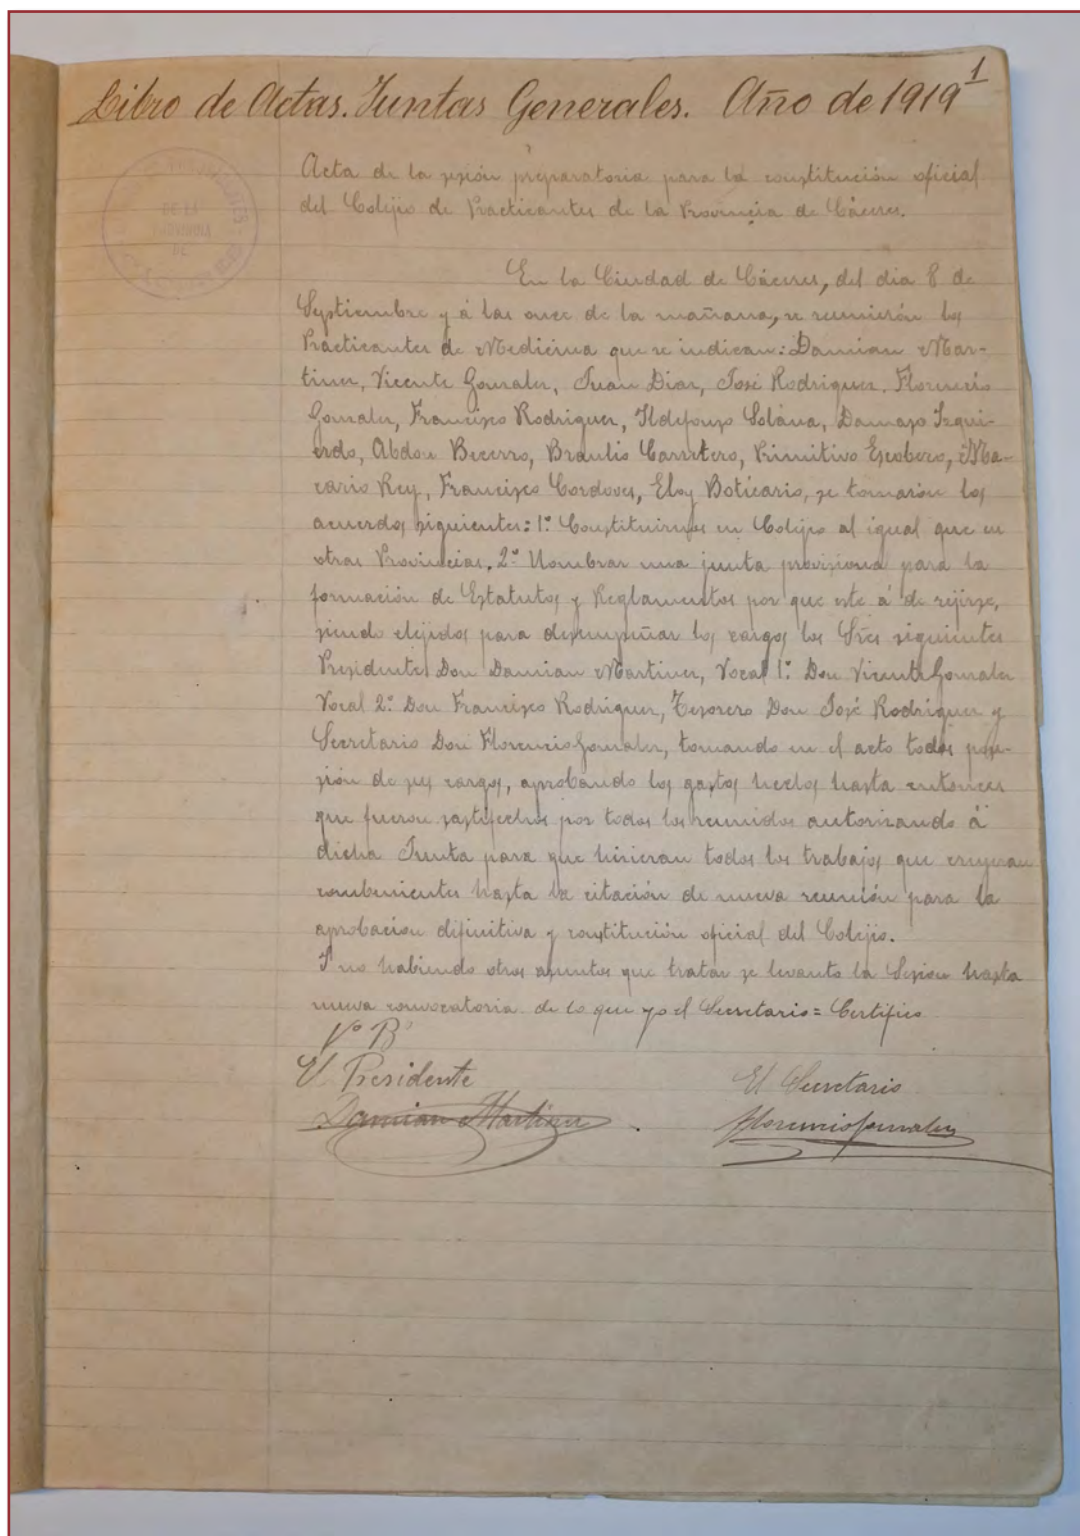 1
Libro de Actas. Juntas Generales. Año de 1919
DE LA
PROVINCIA
DE
Acta de la sesión preparatoria para la constitución oficial
del Colejio de Practicantes de la Provincia de Cáceres.
En la Ciudad de Cáceres, del dia 8 de
Septiembre y á las once de la mañana, se reunierón los
Practicantes de Medicina que se indican: Damian Mar-
tinez, Vicente Gonzalez, Juan Diaz, José Rodriguez, Florencio
Gonzalez, Francisco Rodriguez, Ildefonso Solana, Damaso Izqui-
erdo, Abdon Becerro, Braulio Carretero, Primitivo Escobero, Ma-
cario Rey, Francisco Cordoves, Eloy Boticario, se tomarón los
acuerdos siguientes: 1º Constituirnos en Colejio al igual que en
otras Provincias. 2º Nombrar una junta provisional para la
formación de Estatutos y Reglamentos por que este á de rejirse,
siendo elejidos para desempeñar los cargos los Sres siguientes
Presidente Don Damian Martinez, Vocal 1º Don Vicente Gonzalez
Vocal 2º Don Francisco Rodriguez, Tesorero Don José Rodriguez y
Secretario Don Florencio Gonzalez, tomando en el acto todos pose-
sión de sus cargos, aprobando los gastos hechos hasta entonces
que fueron sastifechos por todos los reunidos autorizando á
dicha Junta para que hicieran todos los trabajos que creyeran
combenientes hasta la citación de nueva reunión para la
aprobación definitiva y constitución oficial del Colejio.
Y no habiendo otros asuntos que tratar se levanto la Sesion hasta
nueva convocatoria de lo que yo el Secretario = Certifico
Vº Bº
El Presidente
El Secretario
Damian Martinez
Florencio Gonzalez